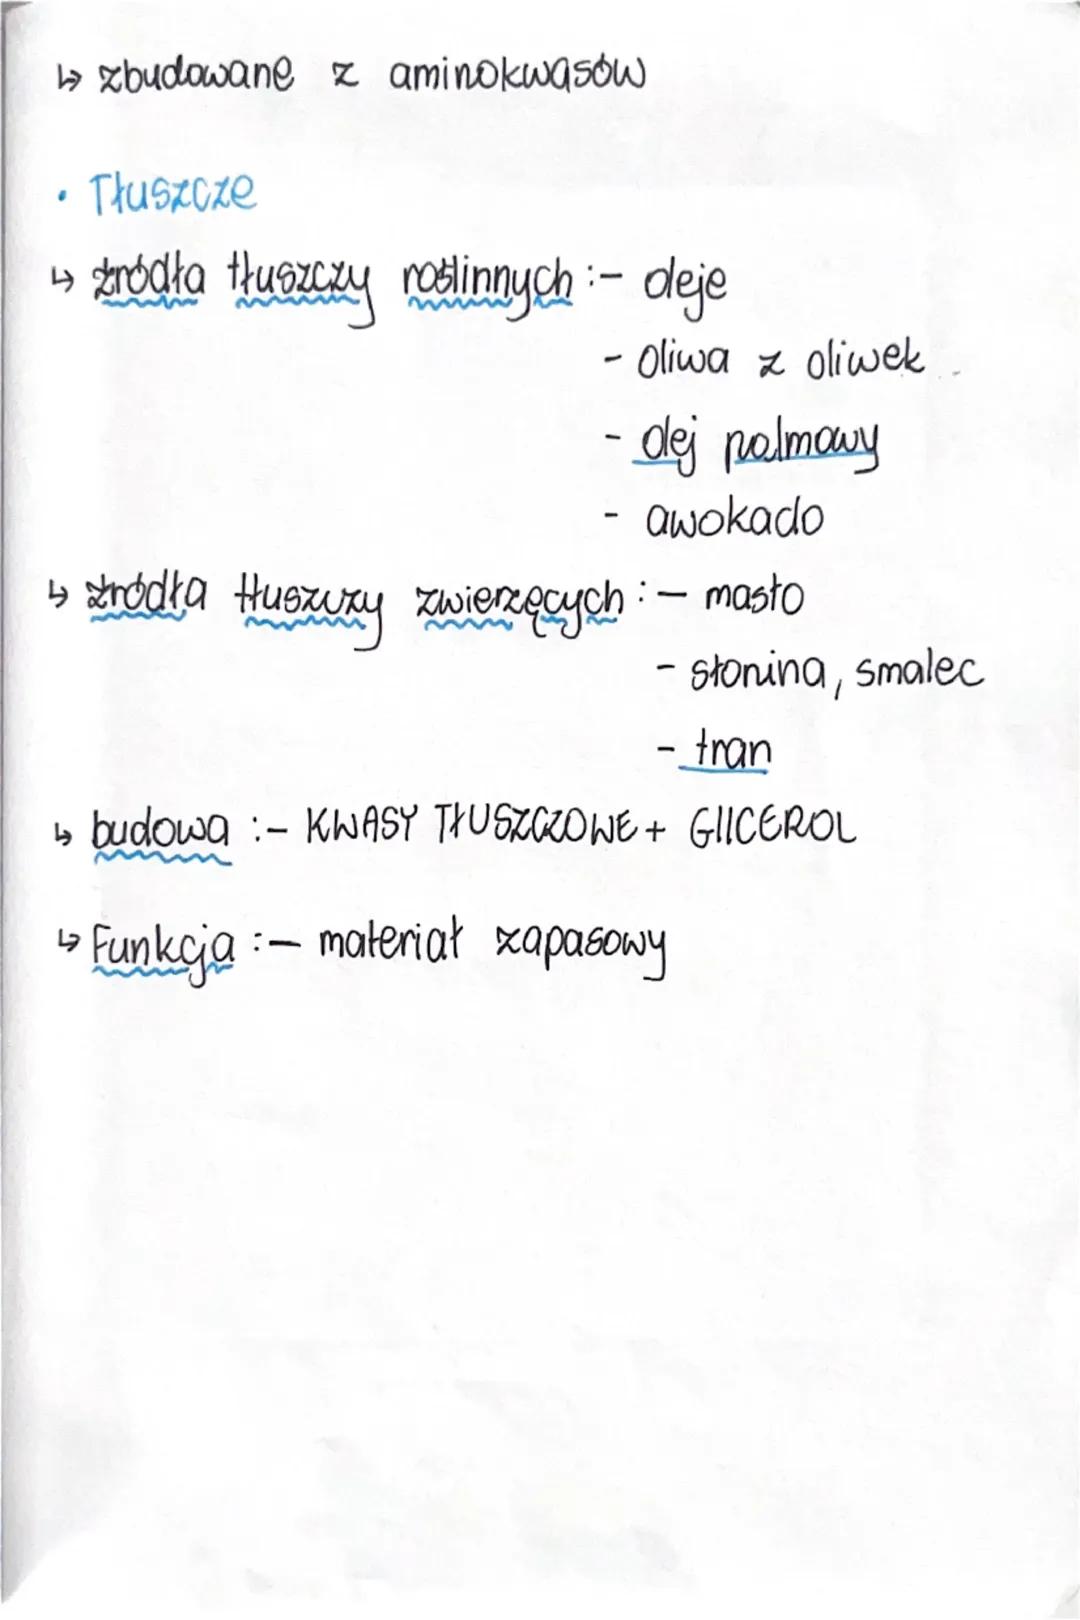 ↳ zbudowane z aminokwasów
• Tłuszcze
↳ źródła tłuszczy roślinnych :- oleje
- oliwa z oliwek
- olej palmowy
- awokado
↳ źródła tłuszczy zwierzęcych :- masło
- słonina, smalec
- tran
↳ budowa :- KWASY TŁUSZCZOWE + GLICEROL
↳ Funkcja :- materiał zapasowy